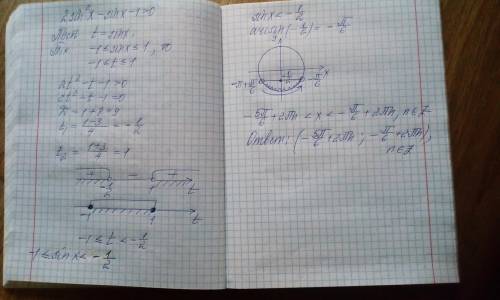 2sin²x - sinx - 1 > 0
t = sinx,
-1 ≤ sinx ≤ 1, то
-1 ≤ t ≤ 1
2t² - t - 1 > 0
2t² - t - 1 = 0
t₁ = (1-3)/4 = -1/2
t₂ = (1+3)/4 = 1
+ - +
-1/2 1 t
-1 1 t
-1 ≤ t < -1/2
-1 ≤ sinx < -1/2
sinx < -1/2
arcsin(-1/2) = -π/6
y
x
-π+π/6 -1/2 -π/6
-5π/6 + 2πn < x < -π/6 + 2πn, n∈Z
Ответ: (-5π/6 + 2πn; -π/6 + 2πn),
n∈Z